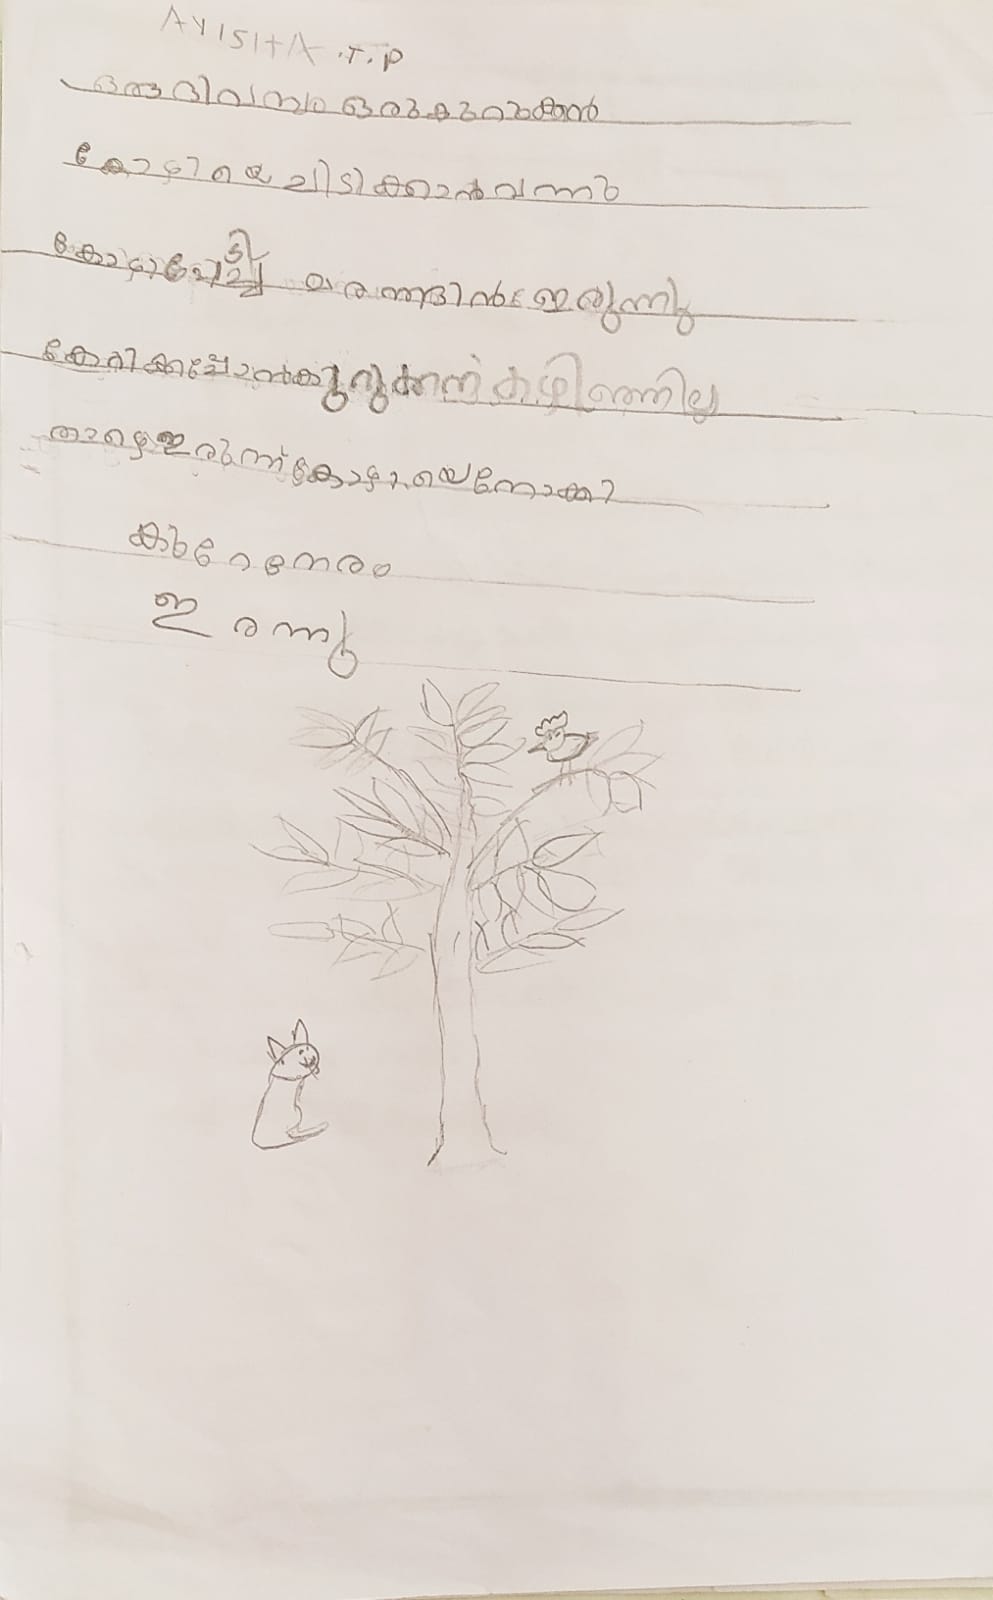 AYISHA .T.P
ഒരു ദിവസം ഒരു കുറുക്കൻ
കോഴിയെ പിടിക്കാൻ വന്നു
കോഴി പേടിച്ച് മരത്തിൽ ഇരുന്നു
കേറിക്കപ്പോൻ കുറുക്കന് കഴിഞ്ഞില്ല
താഴെ ഇരുന്ന് കോഴിയെ നോക്കി
കുറേ നേരം
ഇരന്നു